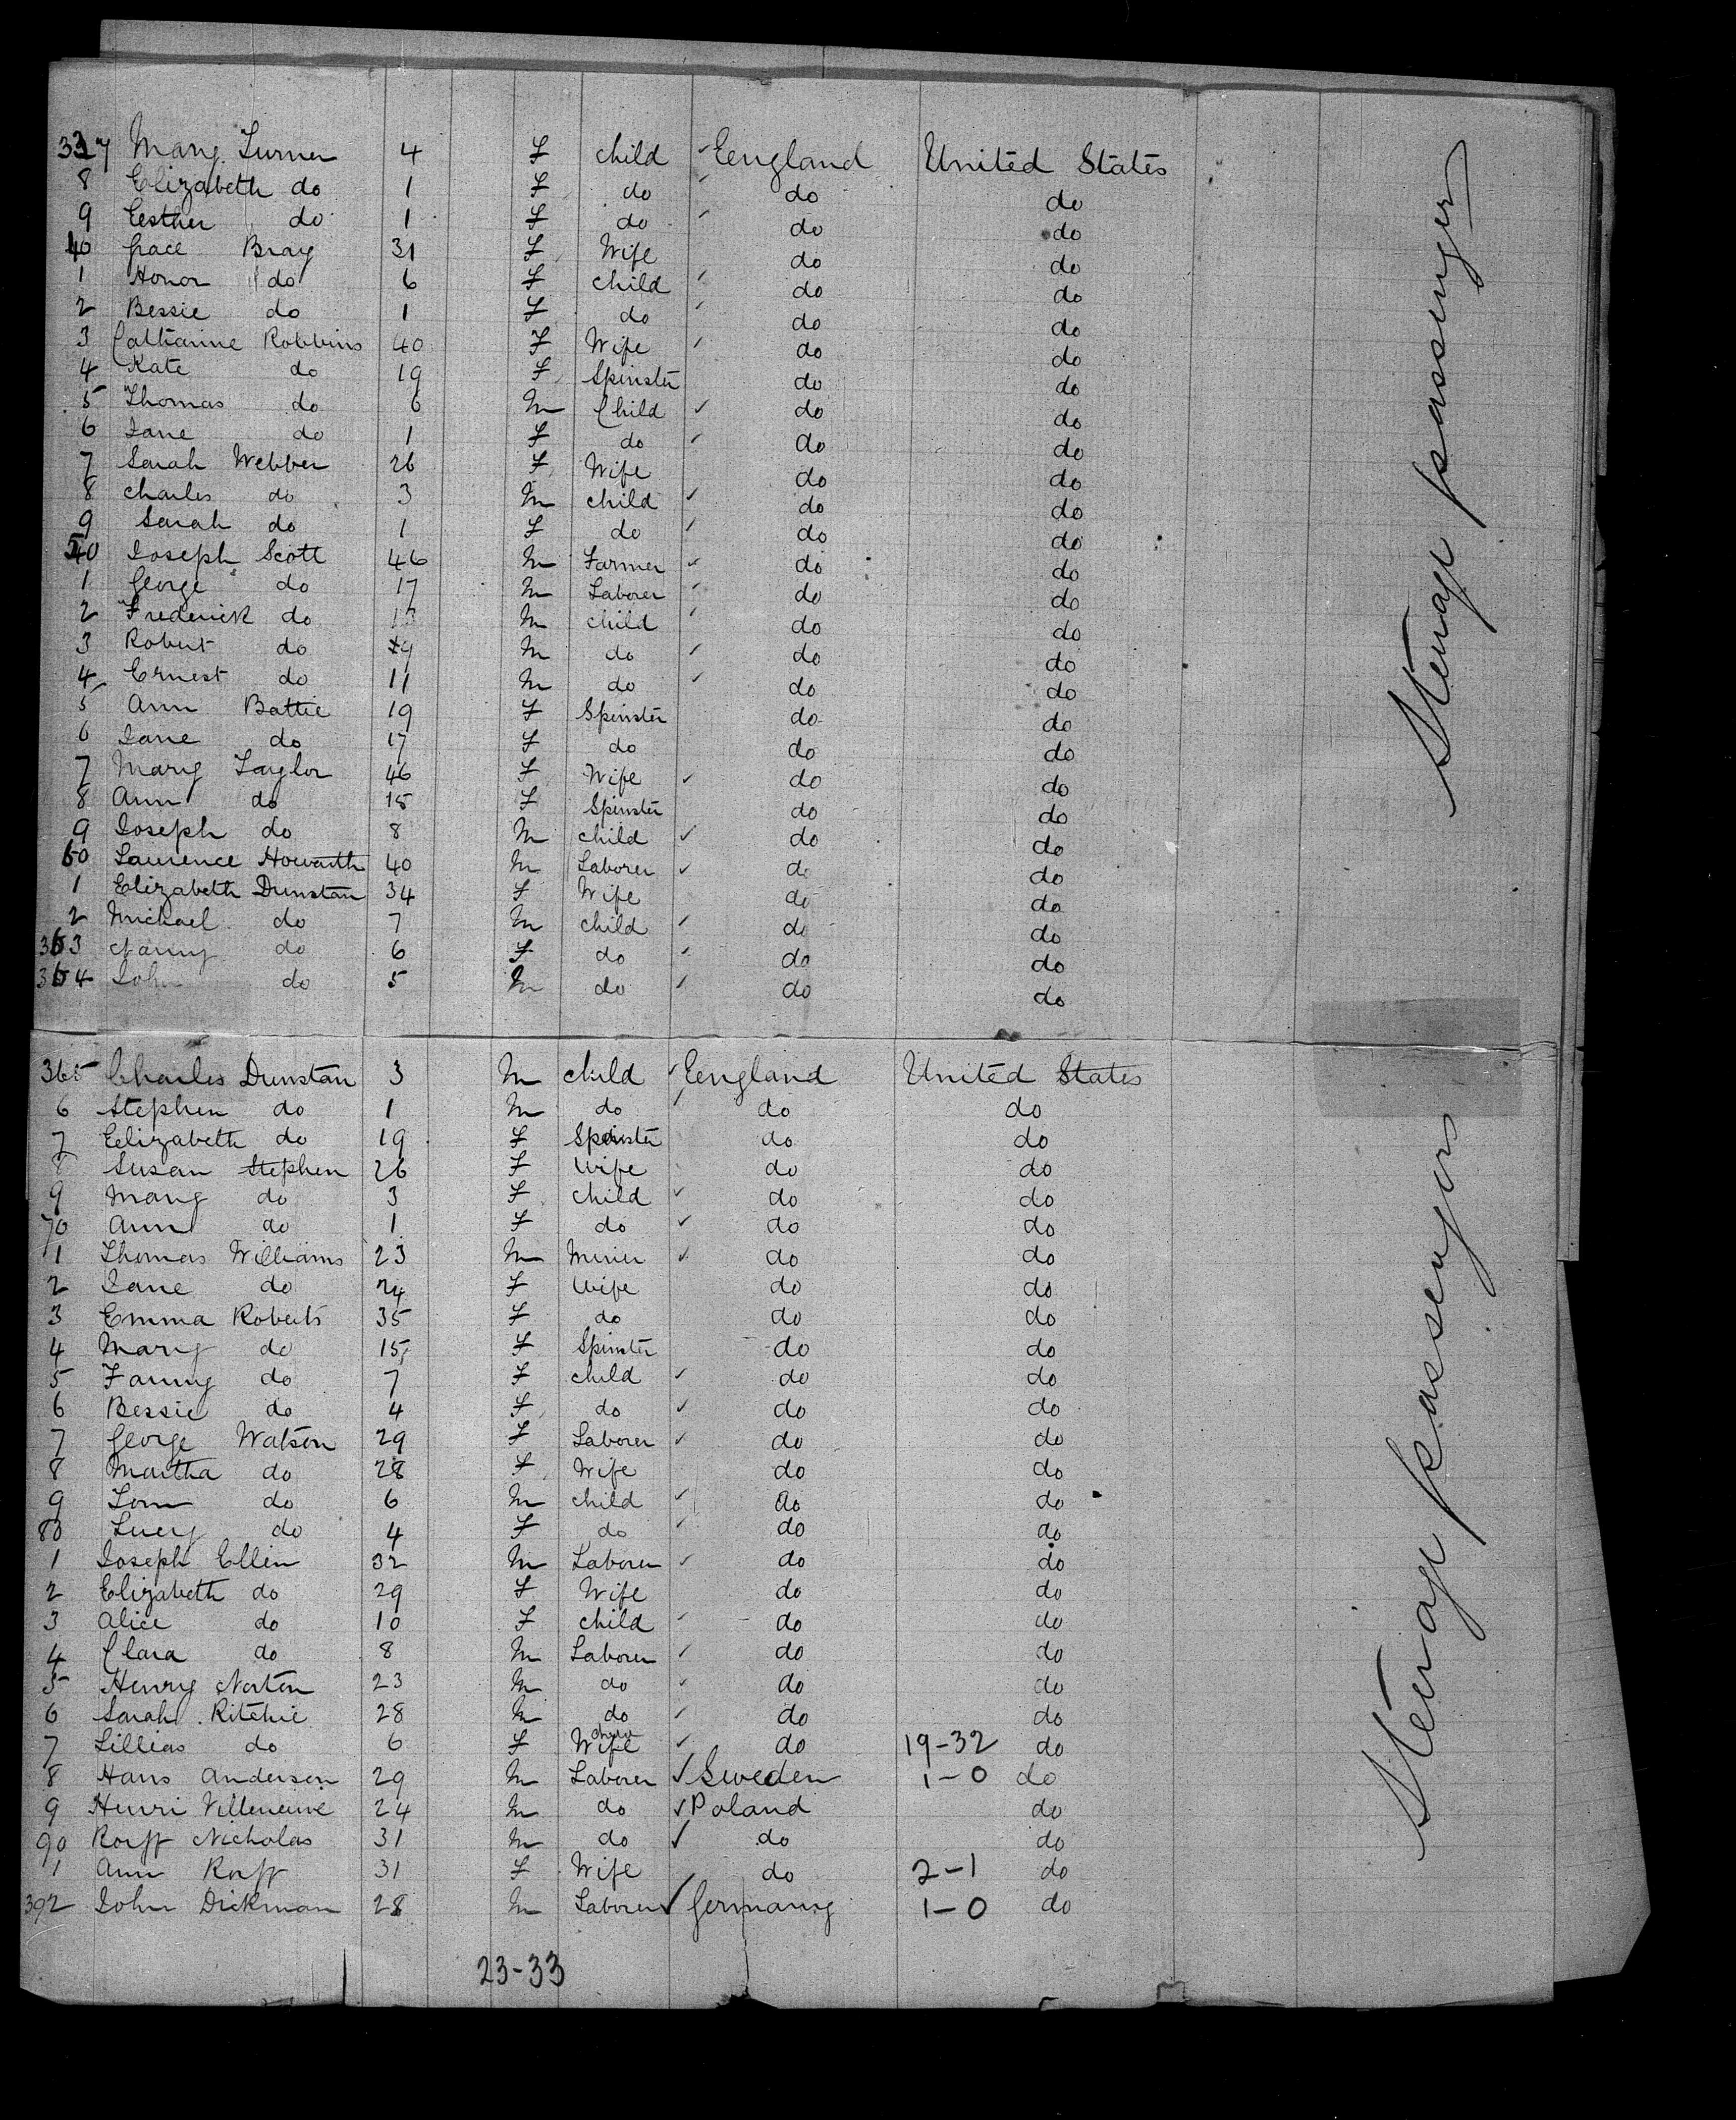 337 Mary Turner 4 F child ✓ England United States
8 Elizabeth do 1 F do do do
9 Eesther do 1 F do do do
40 Grace Bray 31 F Wife do do
1 Honor do 6 F child do do
2 Bessie do 1 F do do do
3 Catharine Robbins 40 F Wife do do
4 Kate do 19 F Spinster do do
5 Thomas do 6 M Child ✓ do do
6 Jane do 1 F do do do
7 Sarah Webber 26 F Wife do do
8 charles do 3 M child ✓ do do
9 Sarah do 1 F do do do
50 Joseph Scott 46 M Farmer ✓ do do
1 George do 17 M Laborer do do
2 Frederick do 13 M child do do
3 Robert do M do do do
4 Ernest do 11 M do do do
5 Ann Battie 19 F Spinster do do
6 Jane do 17 F do do do
7 Mary Taylor 46 F Wife ✓ do do
8 Ann do 15 F Spinster do do
9 Joseph do 8 M child ✓ do do
60 Laurence Howarth 40 M Laborer ✓ do do
1 Elizabeth Dunstan 34 F Wife do do
2 Michael do 7 M child do do
363 Nanny do 6 F do do do
364 John do 5 M do do do
365 Charles Dunstan 3 M child ✓ England United States
6 Stephen do 1 M do do do
7 Eelizabeth do 19 F Spinster do do
8 Susan Stephen 26 F Wife do do
9 Mary do 3 F child ✓ do do
70 Ann do 1 F do ✓ do do
1 Thomas Williams 23 M Minier ✓ do do
2 Jane do 24 F Wife do do
3 Emma Roberts 35 F do do do
4 Mary do 15 F Spinster do do
5 Fanny do 7 F child ✓ do do
6 Bessie do 4 F do ✓ do do
7 George Watson 29 F Laborer ✓ do do
8 Martha do 28 F Wife do do
9 Tom do 6 M child ✓ do do
80 Lucy do 4 F do do do
1 Joseph Ellin 32 M Laborer ✓ do do
2 Elizabeth do 29 F Wife do do
3 Alice do 10 F child do do
4 Clara do 8 M Laborer ✓ do do
5 Henry Norton 23 M do ✓ do do
6 Sarah Ritchie 28 M do do do
7 Lillias do 6 F Wife ✓ do 19-32 do
8 Hans Anderson 29 M Laborer ✓ Sweden 1-0 do
9 Henri Villeneuve 24 M do ✓ Poland do
90 Rorff Nicholas 31 M do ✓ do do
1 Ann Rorff 31 F Wife do 2-1 do
392 John Dickman 28 M Laborer ✓ Germany 1-0 do
23-33
Sterage passenger
Sterage passengers